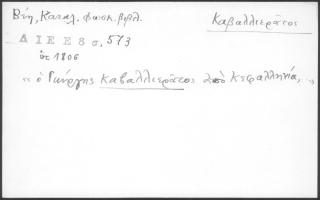 Βέη, Καταλ. Φασκ. βιβλ.
Καβαλλιεράτος
Δ Ι Ε Ε 8 σ, 573
ἔτ 1806
"ὁ Γεώργης Καβαλλιεράτος ἀπὸ Κεφαλληνία, ..